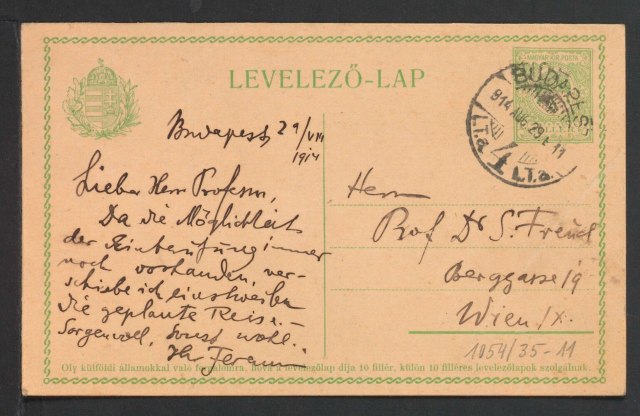 LEVELEZŐ-LAP
MAGYAR KIR. POSTA
BUDAPEST
914 AUG. 29 É. 11
4
I.T.a.
I.T.a.
Budapest, 29/VIII
1914
Lieber Herr Professor,
Da die Möglichkeit
der Einberufung immer
noch vorhanden, ver-
schiebe ich einstweilen
die geplante Reise. —
Sorgenvoll, sonst wohl.
Ihr Ferenczi
Herrn
Prof Dr S. Freud
Berggasse 19
Wien IX.
1054/35-11
Oly külföldi államokkal való forgalomra, hová a levelezőlap díja 10 fillér, külön 10 filléres levelezőlapok szolgálnak.